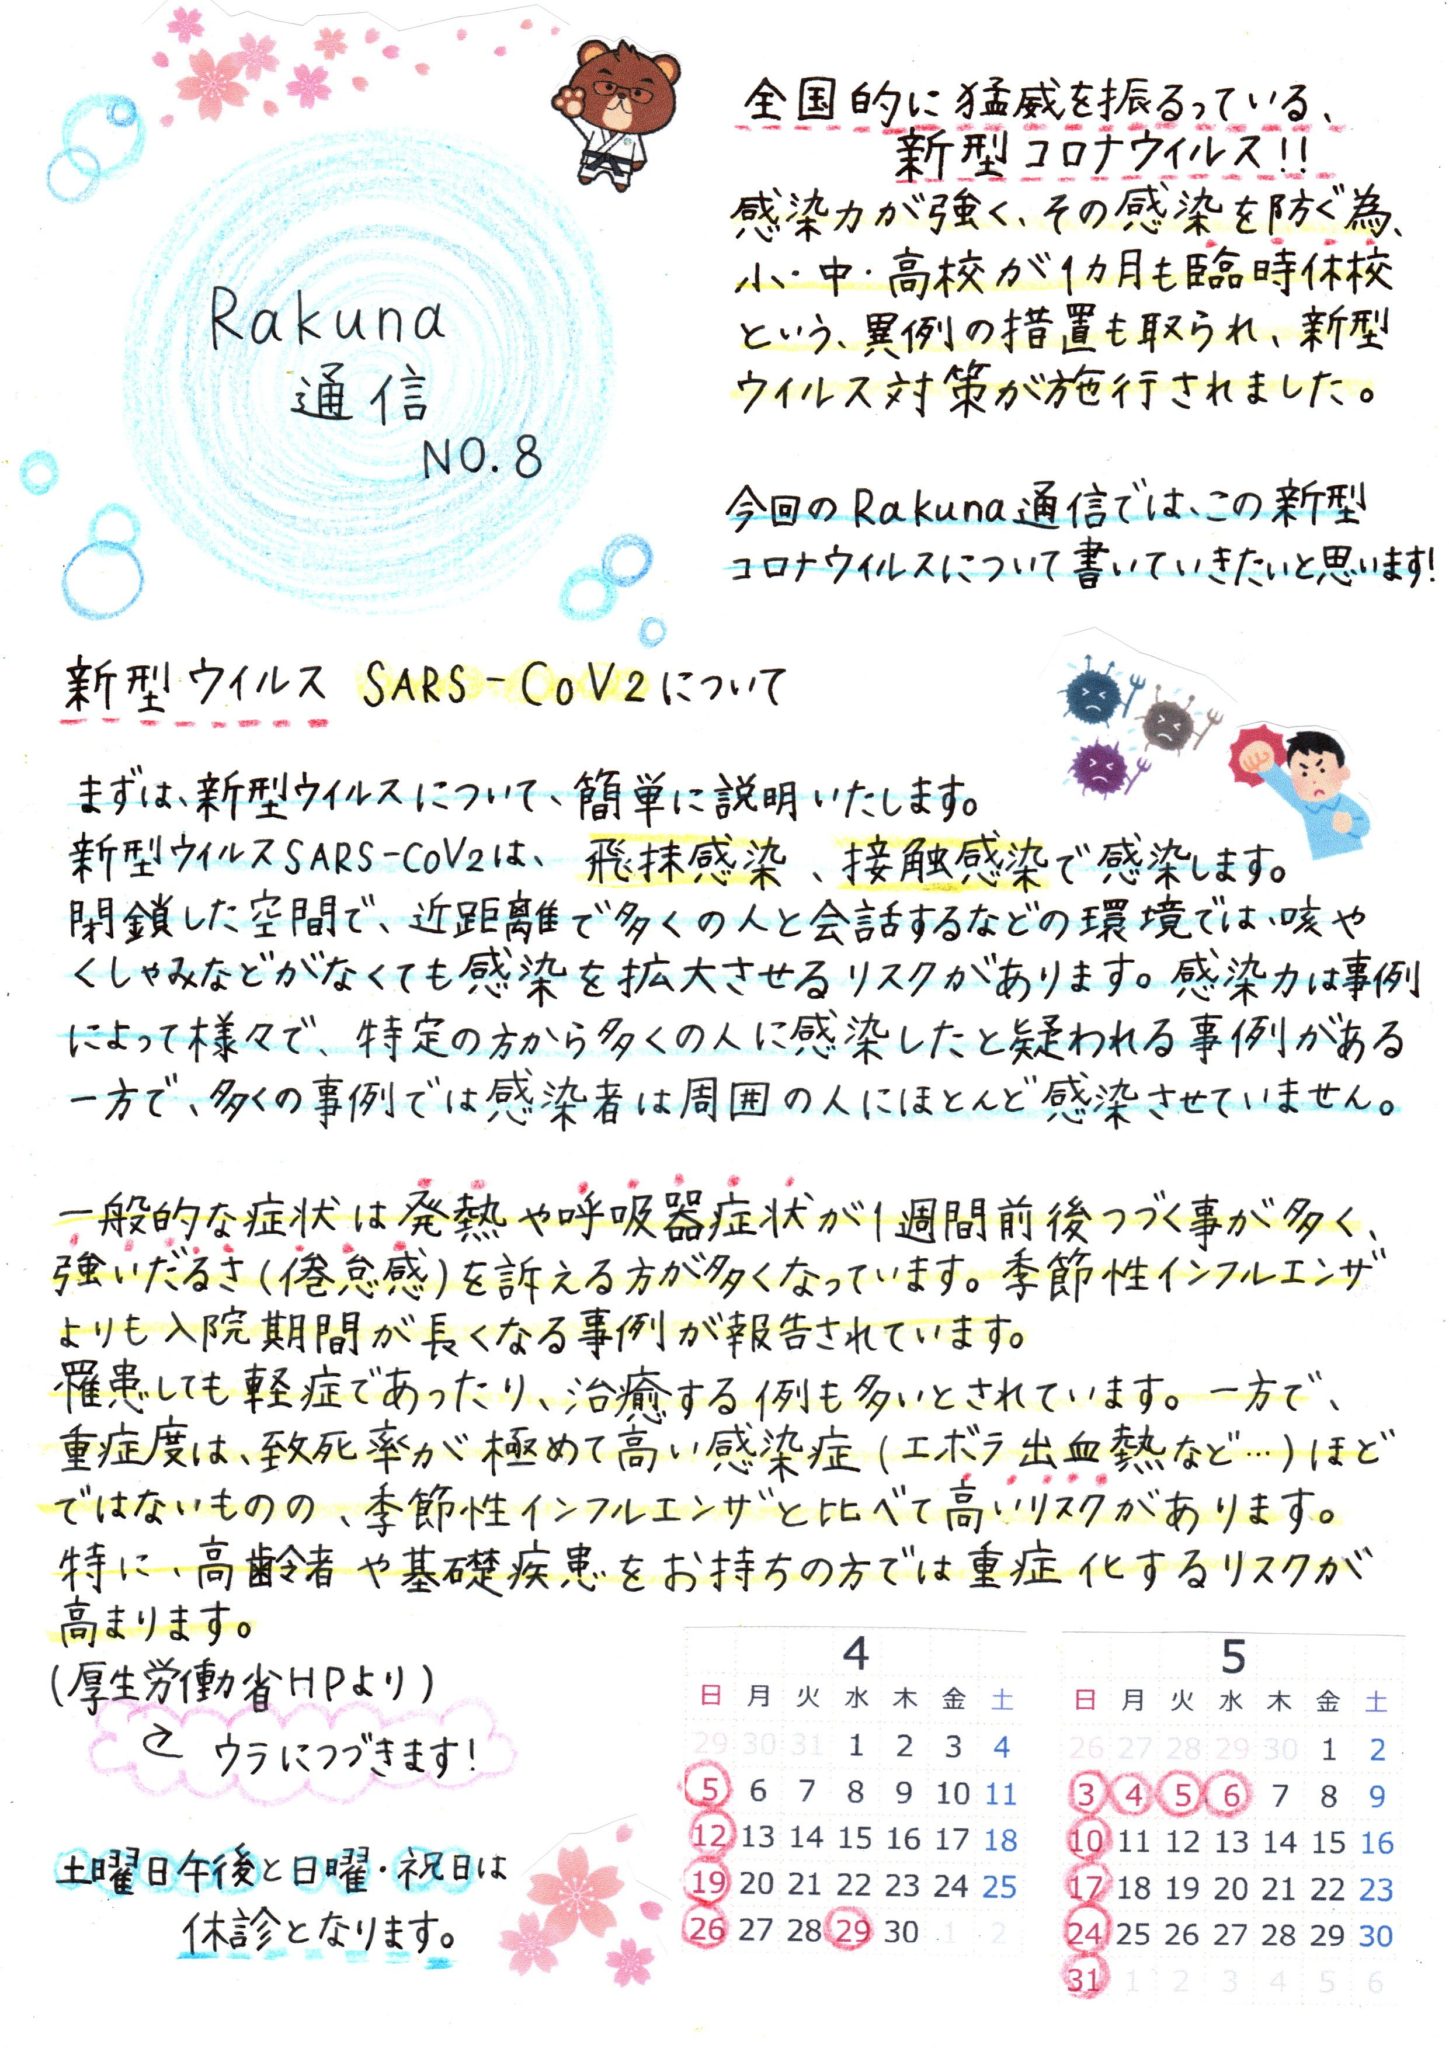 Rakuna
通信
NO.8
全国的に猛威を振るっている、
新型コロナウイルス!!
感染力が強く、その感染を防ぐ為、
小・中・高校が1カ月も臨時休校
という、異例の措置も取られ、新型
ウイルス対策が施行されました。
今回のRakuna通信では、この新型
コロナウィルスについて書いていきたいと思います!
新型ウイルス SARS-CoV2について
まずは、新型ウイルスについて、簡単に説明いたします。
新型ウイルスSARS-CoV2は、飛抹感染、接触感染で感染します。
閉鎖した空間で、近距離で多くの人と会話するなどの環境では、咳や
くしゃみなどがなくても感染を拡大させるリスクがあります。感染力は事例
によって様々で、特定の方から多くの人に感染したと疑われる事例がある
一方で、多くの事例では感染者は周囲の人にほとんど感染させていません。
一般的な症状は発熱や呼吸器症状が1週間前後つづく事が多く、
強いだるさ(倦怠感)を訴える方が多くなっています。季節性インフルエンザ
よりも入院期間が長くなる事例が報告されています。
罹患しても軽症であったり、治癒する例も多いとされています。一方で、
重症度は、致死率が極めて高い感染症(エボラ出血熱など…)ほど
ではないものの、季節性インフルエンザと比べて高いリスクがあります。
特に、高齢者や基礎疾患をお持ちの方では重症化するリスクが
高まります。
(厚生労働省HPより)
ウラにつづきます!
土曜日午後と日曜・祝日は
休診となります。
4
日 月 火 水 木 金 土
29 30 31 1 2 3 4
5 6 7 8 9 10 11
12 13 14 15 16 17 18
19 20 21 22 23 24 25
26 27 28 29 30 1 2
5
日 月 火 水 木 金 土
26 27 28 29 30 1 2
3 4 5 6 7 8 9
10 11 12 13 14 15 16
17 18 19 20 21 22 23
24 25 26 27 28 29 30
31 1 2 3 4 5 6